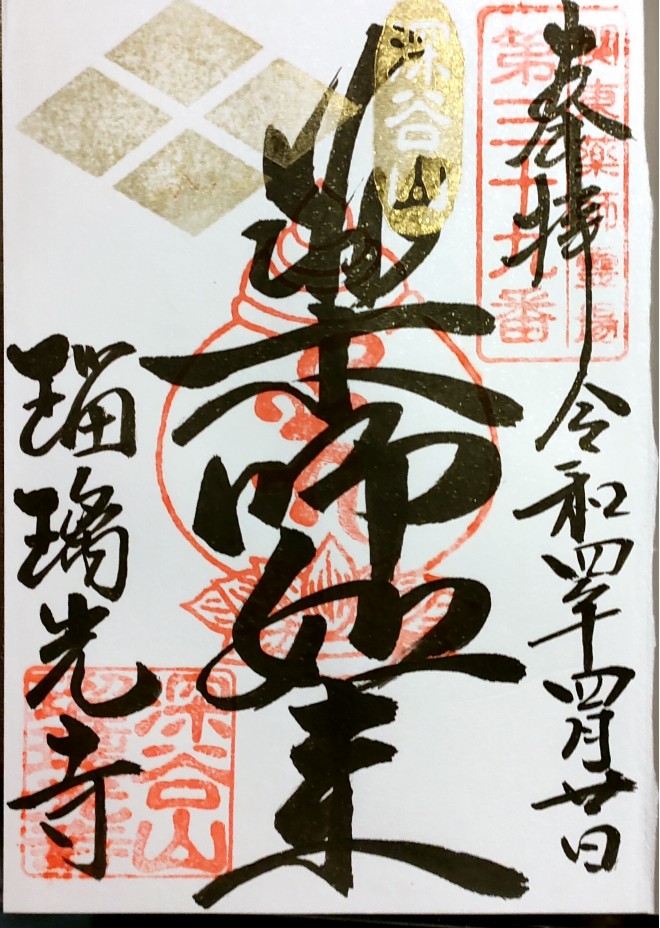 奉拝
令和四年四月廿日
関東薬師霊場
第三十九番
深谷山
薬師如来
瑠璃光寺
深谷山